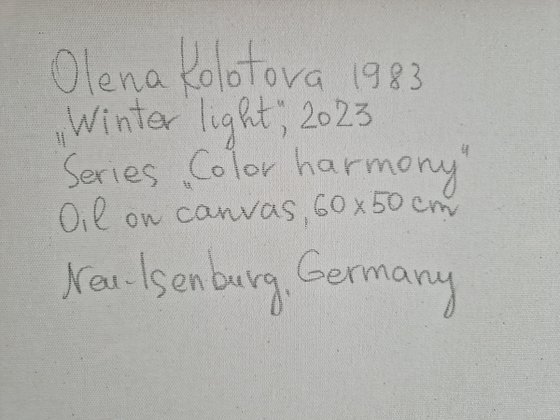 Olena Kolotova 1983
„Winter light“, 2023
Series „Color harmony“
Oil on canvas, 60x50 cm
Neu-Isenburg, Germany